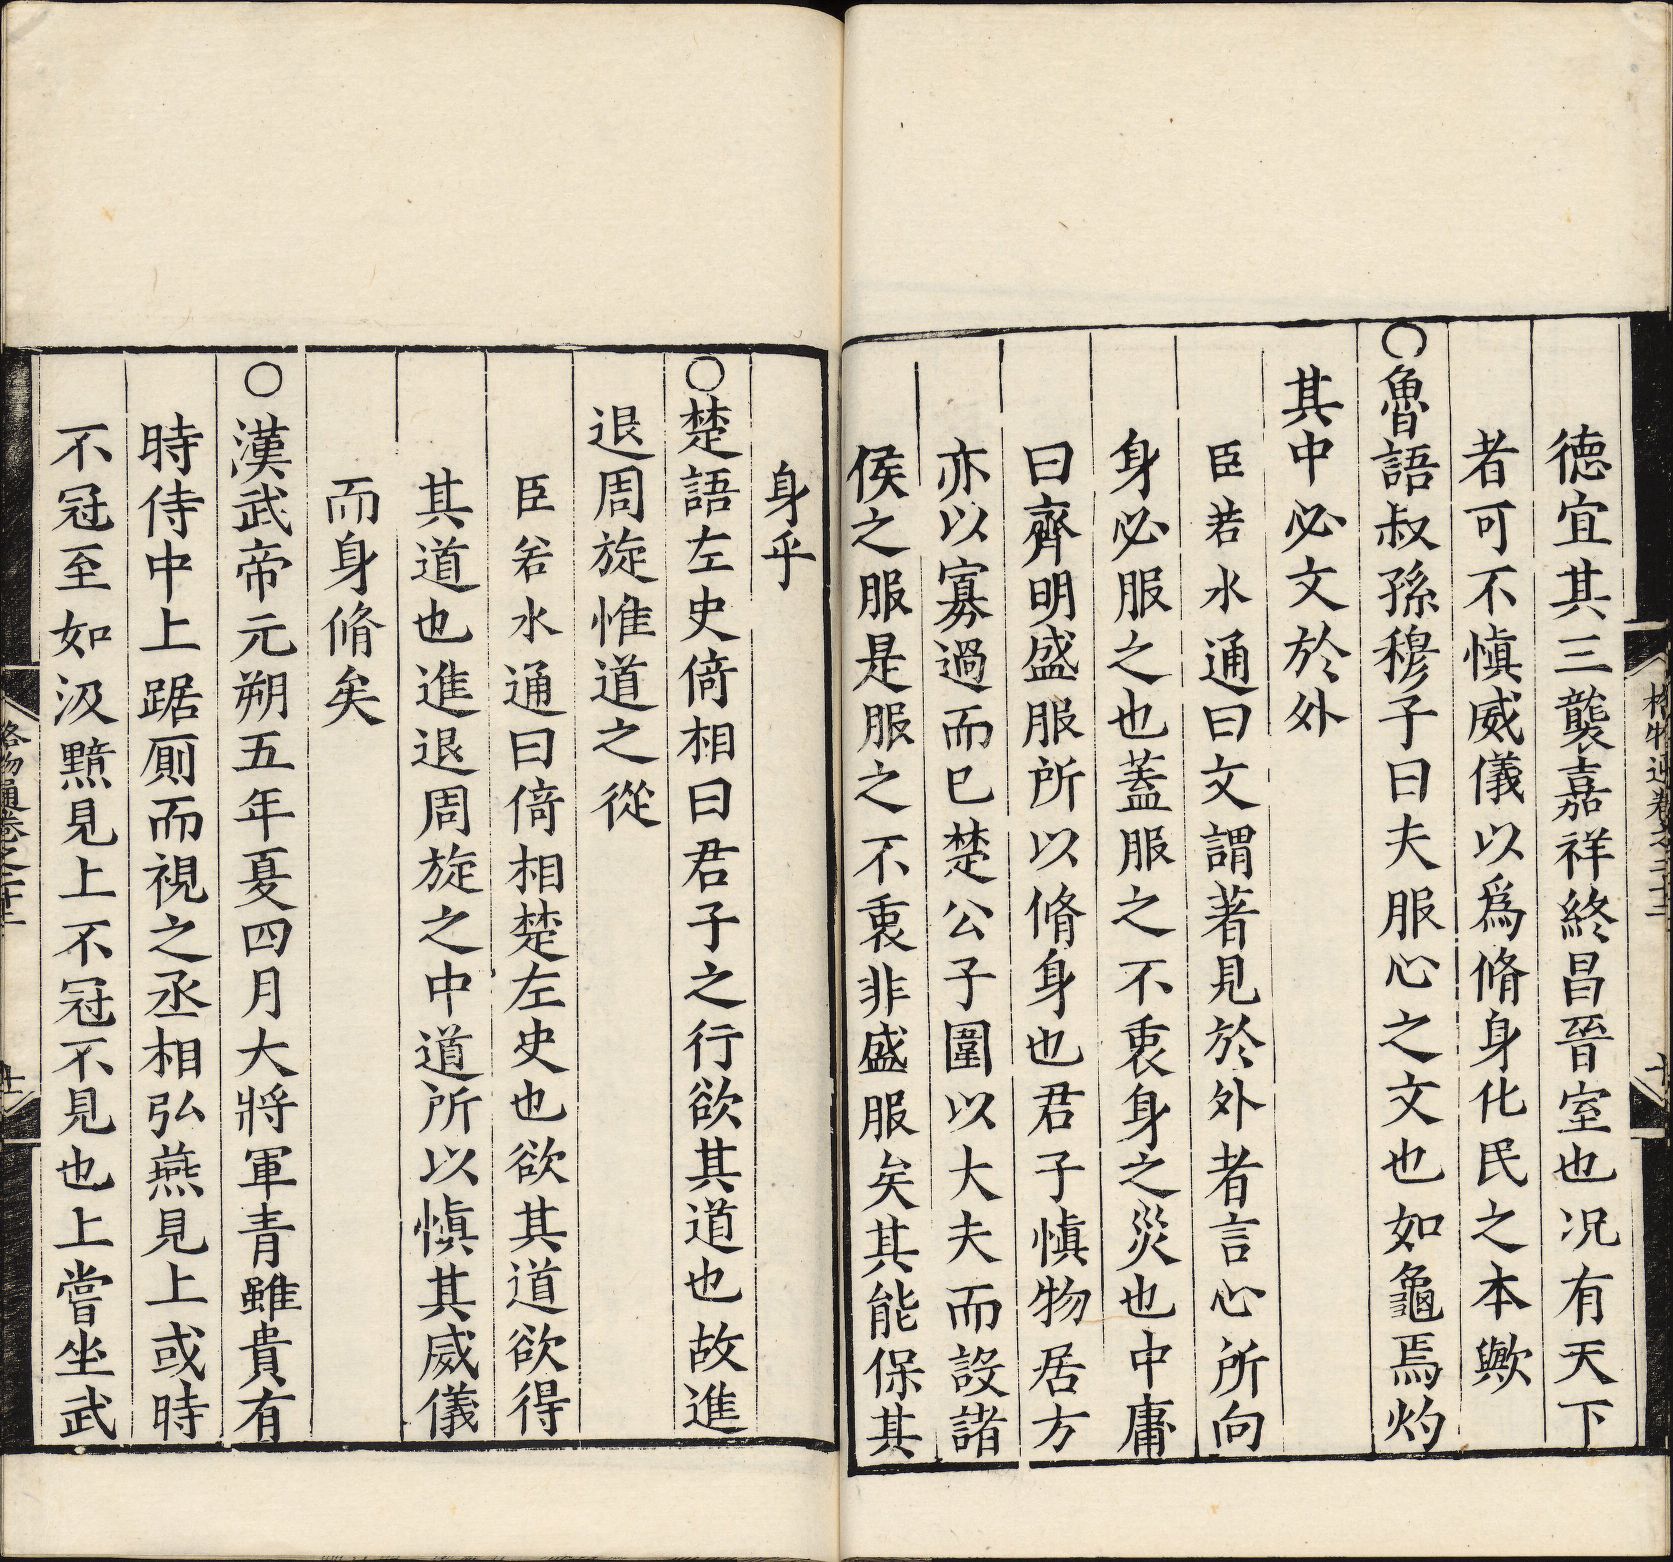 德宜其三襲嘉祥終昌晉室也况有天下
者可不愼威儀以爲脩身化民之本歟
○魯語叔孫穆子曰夫服心之文也如龜焉灼
其中必文於外
臣若水通曰文謂著見於外者言心所向
身必服之也蓋服之不衷身之災也中庸
曰齊明盛服所以脩身也君子愼物居方
亦以寡過而已楚公子圍以大夫而設諸
侯之服是服之不衷非盛服矣其能保其
身乎
○楚語左史倚相曰君子之行欲其道也故進
退周旋惟道之從
臣若水通曰倚相楚左史也欲其道欲得
其道也進退周旋之中道所以愼其威儀
而身脩矣
○漢武帝元朔五年夏四月大將軍青雖貴有
時侍中上踞厠而視之丞相弘燕見上或時
不冠至如汲黯見上不冠不見也上嘗坐武